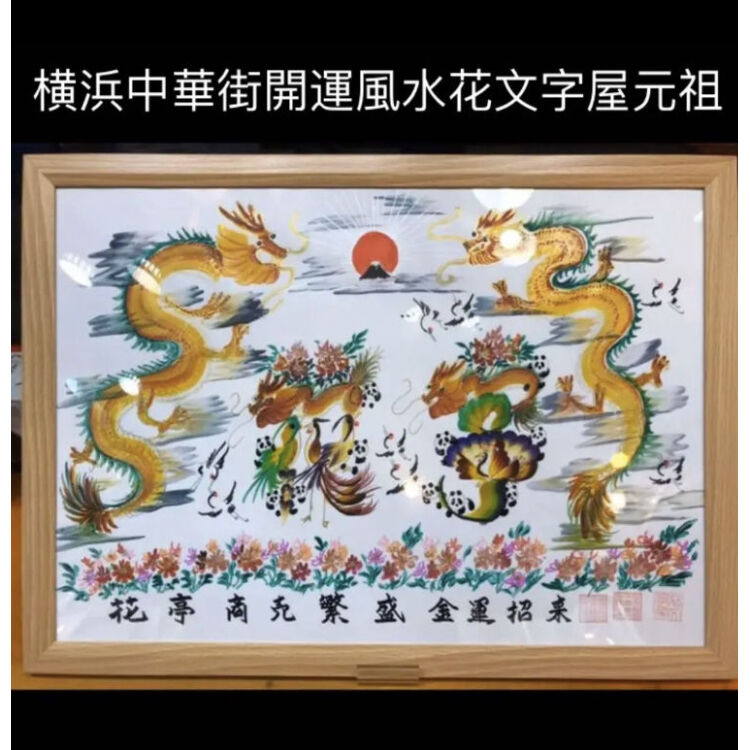 横浜中華街開運風水花文字屋元祖
花亭 商売繁盛 金運招来